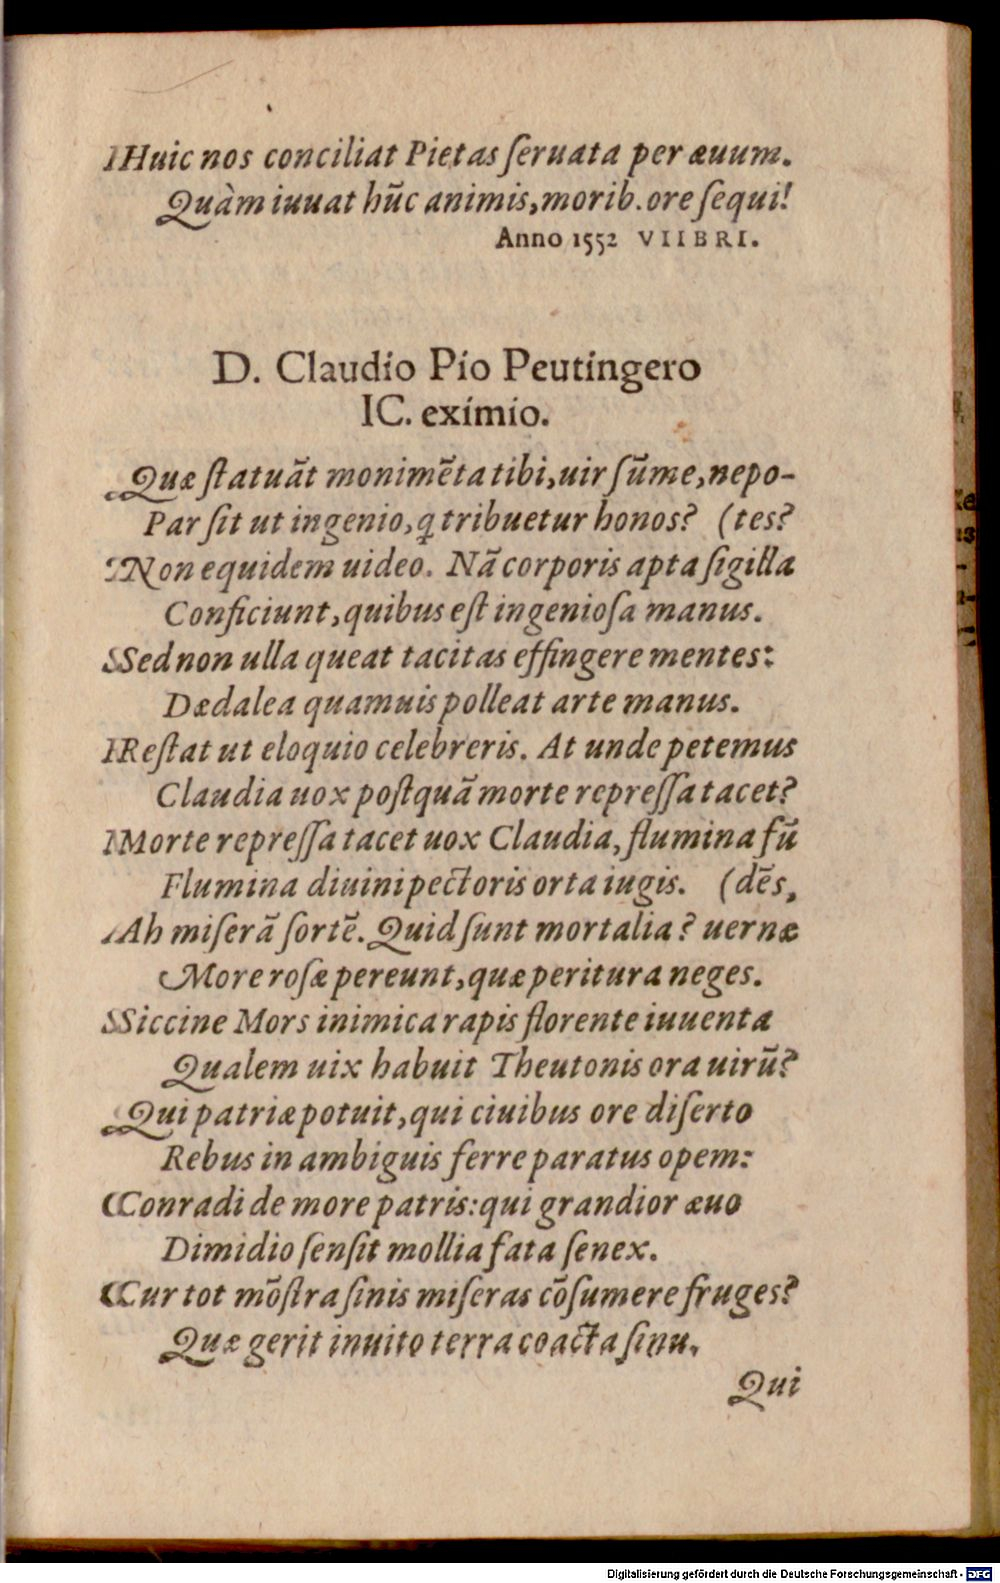 Huic nos conciliat Pietas ſeruata per æuum.
Quàm iuuat hūc animis, morib. ore ſequi!
Anno 1552 VIIBRI.
D. Claudio Pio Peutingero
IC. eximio.
Quæ ſtatuāt monimēta tibi, uir ſūme, nepo-
Par ſit ut ingenio, q tribuetur honos? (tes?
Non equidem uideo. Nā corporis apta ſigilla
Conficiunt, quibus eſt ingenioſa manus.
Sed non ulla queat tacitas effingere mentes:
Dædalea quamuis polleat arte manus.
Reſtat ut eloquio celebreris. At unde petemus
Claudia uox poſtquā morte repreſſa tacet?
Morte repreſſa tacet uox Claudia, flumina fū
Flumina diuini pectoris orta iugis. (dēs,
Ah miſerā ſortē. Quid ſunt mortalia? uernæ
More roſæ pereunt, quæ peritura neges.
Siccine Mors inimica rapis florente iuuenta
Qualem uix habuit Theutonis ora uirū?
Qui patriæ potuit, qui ciuibus ore diſerto
Rebus in ambiguis ferre paratus opem:
Conradi de more patris: qui grandior æuo
Dimidio ſenſit mollia fata ſenex.
Cur tot mōſtra ſinis miſeras cōſumere fruges?
Quæ gerit inuito terra coacta ſinu,
Qui
Digitalisierung gefördert durch die Deutsche Forschungsgemeinschaft - DFG